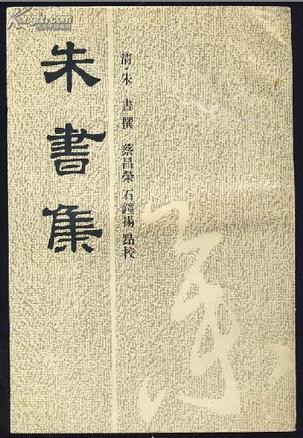 朱書集
清 朱書撰 蔡昌榮 石鐘揚 點校